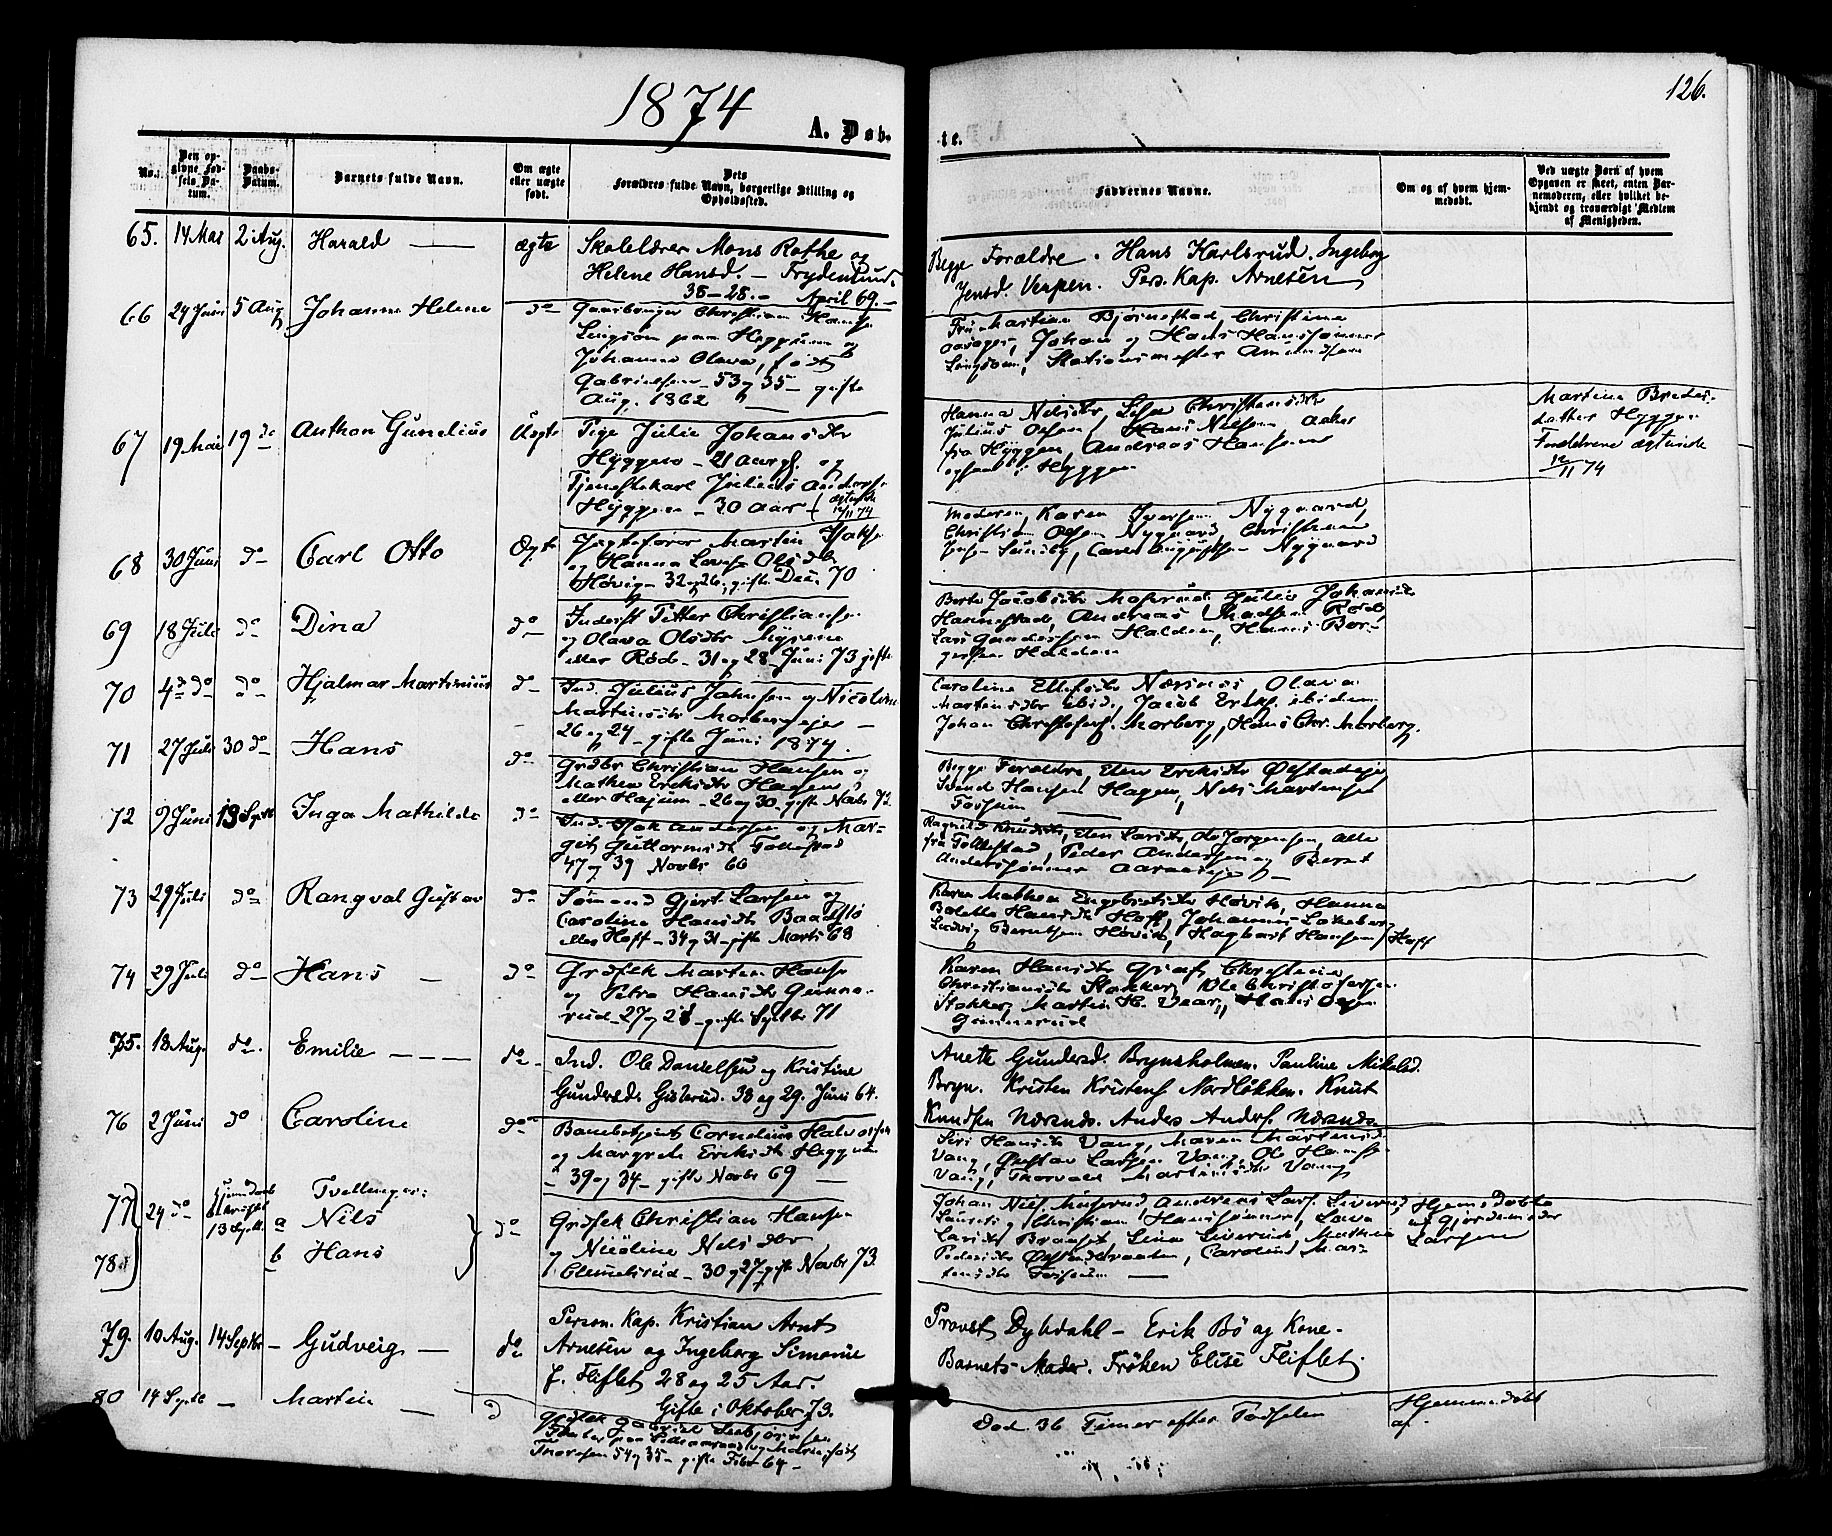 1874
126.
A. Døb-
te.
No.
Den op-
givne Fød-
sels Da-
tum.
Daabs-
Datum.
Barnets fulde Navn.
Om ægte
eller uægte
født.
Dets
Forældres fulde Navn, borgerlige Stilling og
Opholdssted.
Faddernes Navne.
Om og af hvem hjem-
medøbt.
Ved uægte Børn af hvem
Opgaven er skeet, enten Bar-
nemoderen, eller hvilket be-
kjendt og troværdigt Medlem
af Menigheden.
65. 14 Mai 2 Aug. Harald — ægte
Skolelærer Mons Rothe og
Helene Hansd. — Frydenlund.
38 – 28. – April 69. –
Begge Forældre. Hans Karlsrud. Ingeborg
Jensd. Pers. Kap. Arnesen
66 24 Juni 5 Aug Johanne Helene do
Gaardbruger Christian Hanse
Lingsom paa Heggum og
Johanne Olava, født
Gabrielsen – 53 og 35 – gifte
Aug. 1862
Fru Martine Bjørnestad, Christine
Johan og Hans Hanssønner
Lingsom, Stationsmester Amundsen
67 19 Mai 19 do Anthon Gunelius Uægte
Pige Julie Johansdtr
Hyggen – 21 Aar gl. og
Tjenestekarl Julius Anderse
Hyggen – 30 Aar – 12/11 74
Hanna Nelsdtr, Lisa Christensdtr
Julius Olsen, Hans Nielsen, Aaker
fra Hyggen, Andreas Hansen
ogsaa i Hyggen
Martine Bredes-
datter Hyggen
Forældrene ægteviede
12/11 74
68 30 Juni do Carl Otto Ægte
Martin Isakse
og Hanna Lovise Olsdtr
Høvig – 32 og 26, gifte Dec. 70
Moderen, Karen Iversen Nygaard,
Christian Olsen Nygaard Christian
Lundby, Carl Augustsen Nygaard
69 18 Juli do Dina do
Inderst Petter Christianse
og Olava Olsdtr Myrene
eller Rød – 31 og 28 – Juni 73 gifte
Berte Jacobsdtr Julie Johansd
Hannestad, Andreas Madsen Rød,
Lars Gundersen Halden, Hans Bor-
gersen Halden
70 4de do do Hjalmar Martinius do
Ind. Julius Johnsen og Nicoline
Martinsdtr Morbergeje –
26 og 24 – gifte Juni 1874.
Caroline Ellefsdtr Nærsnes Olava
Martinsdtr ibid, Jacob Eriks. ibidem,
Johan Christofers. Morberg, Hans Chr. Morberg.
71 27 Juli 30 do Hans do
Grdbr Christian Hansen og
Mathea Eriksdtr Hagen
eller Hajum – 26 og 30 – gifte Novbr 72.
Begge Forældre, Elen Eriksdtr Ølstadeje
Hansen Hagen, Nels Martinsen
Fossum
72 9 Juni 13 Septb Inga Mathilde do
Ind. Isak Andersen og Mar-
git Guttormsdtr Follestad
47 og 39 Novbr 60
Ragnild Knudsdtr, Elen Larsdtr, Ole Jørgensen, alle
fra Follestad, Peder Andersen og Bernt
Anderssønner
73 29 Juli do Rangval Gustav do
Sømand Gjert Larsen og
Caroline Hansdtr Baadstø
eller Hoff – 34 og 31 – gifte Marts 68
Karen Mathea Engebretsdtr Høvik, Hanna
Bolette Hansdtr Hoff, Johannes Løkeberg,
Ludvig Berntsen Høvik, Hagbart Hansen Hoff
74 29 Juli do Hans – do
Grdsek Marten Hanse
og Petra Hansdtr Gunne-
rud – 27 og 28 – gifte Septbr 71
Karen Hansdtr Graf, Christine
Christiansdtr Stokker, Ole Christofersen
Stokker, Martin H. Hans Olsen
Gunnerud
75. 18 Aug. do. Emilie – – – do
Ind. Ole Danielsen og Kristine
Gundersd. Gisterud. 38 og 29. Juni 64.
Anette Gundersd. Brynsholmen. Pauline Mikelsd.
Bryn. Kristen Kristens Nordløkken. Knut
Knudsen Nærsnds. Andes Anders. Nærsnds.
76 2 Juni do Caroline do
Banebetjent Cornelius Halvorsen
og Margrete Eriksdtr Heggum
– 39 og 34 – gifte Novbr 69 –
Siri Hansdtr Vang, Maren Martensd.
Vang, Gustav Larsen Vang, Ole Hanse
Vang, Thorvald Martinsdtr Vang
77 24 do 13 Septb. Tvellinger:
a Nils
78 b Hans do
Grdsek Christian Hanse
og Nicoline Nels dtr
Clemetsrud – 30 og 27 – gifte Novbr 73.
Johan Niels. Andreas Lars. Liverud,
Laurits og Christian Hanssønner, Lava
Larsdtr Braaset, Lina Liverud, Mathea
Pedersdtr Caroline Mar-
tensdtr Fossum –
Hjemmedøbte
af Gjordemoder
Larsen
79. 10 Aug. 14 Septbr – Gudveig – do
Person. Kap. Kristian Arnt
Arnesen og Ingeborg Simonie
f. Fliflet 28 og 25 Aar.
Gifte i Oktober 73.
Provst Dybdahl – Erik Bø og Kone –
Barnets Moder. Frøken Elise Fliflet
80 14 Septb – Martin – d
Thoresen 54 og 35 – gifte Febr 64 –
Død 36 Timer efter Fødselen
Hjemmedøbt
af.